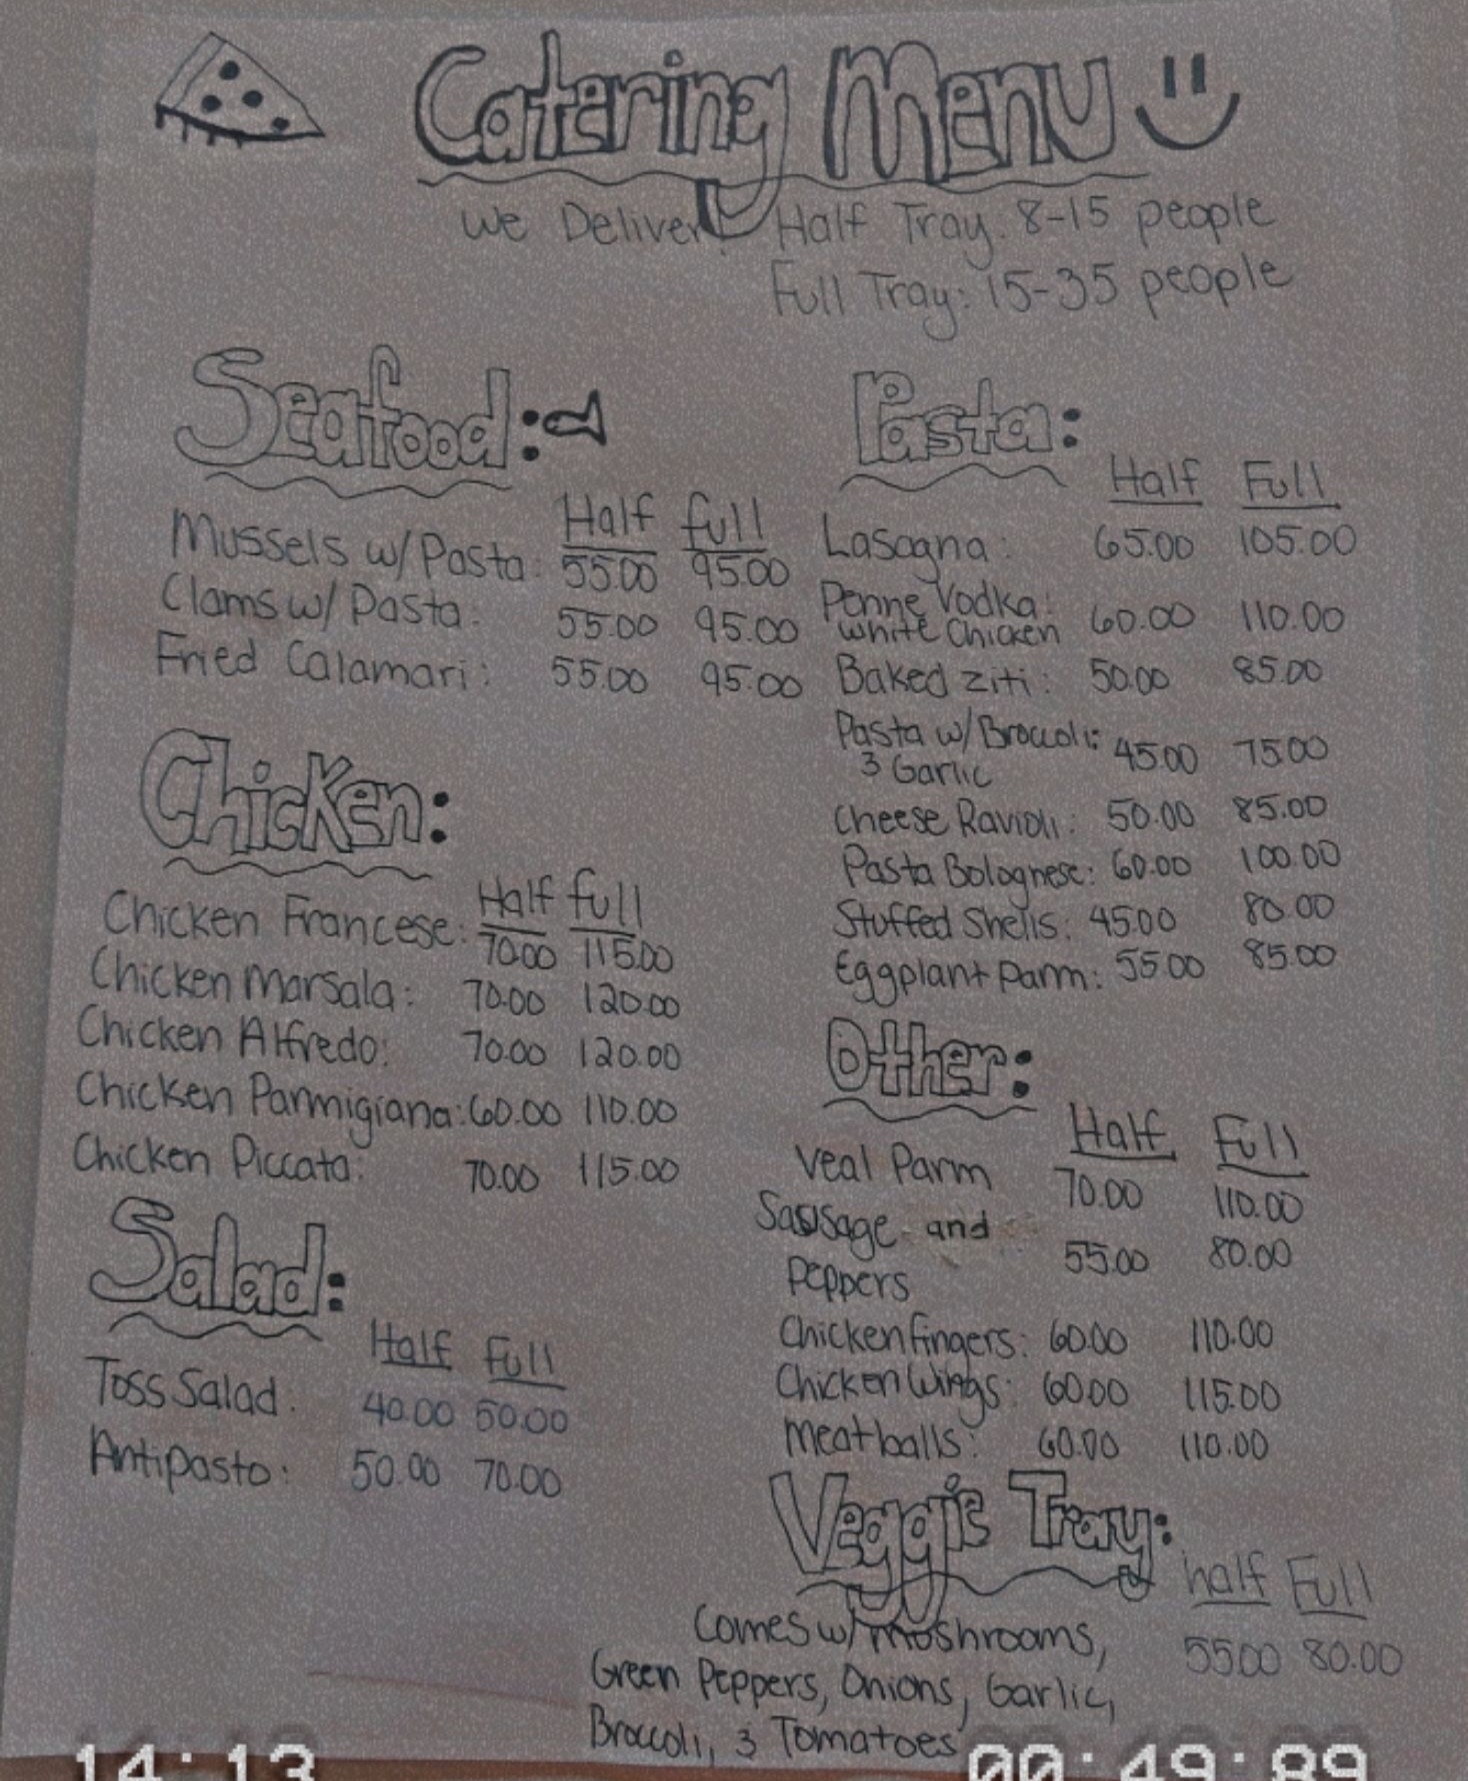 Catering Menu
We Deliver! Half Tray: 8-15 people
Full Tray: 15-35 people
Seafood:
Half full
Mussels w/Pasta: 55.00 95.00
Clams w/ Pasta: 55.00 95.00
Fried Calamari: 55.00 95.00
Chicken:
Half full
Chicken Francese: 70.00 115.00
Chicken Marsala: 70.00 120.00
Chicken Alfredo: 70.00 120.00
Chicken Parmigiana: 60.00 110.00
Chicken Piccata: 70.00 115.00
Salad:
Half Full
Toss Salad: 40.00 50.00
Antipasto: 50.00 70.00
Pasta:
Half Full
Lasagna: 65.00 105.00
Penne Vodka: 60.00 110.00
white Chicken
Baked ziti: 50.00 85.00
Pasta w/Broccoli: 45.00 75.00
3 Garlic
Cheese Ravioli: 50.00 85.00
Pasta Bolognese: 60.00 100.00
Stuffed Shells: 45.00 80.00
Eggplant Parm: 55.00 85.00
Other:
Half Full
Veal Parm 70.00 110.00
Sausage and
Peppers 55.00 80.00
Chicken fingers: 60.00 110.00
Chicken Wings: 60.00 115.00
Meatballs: 60.00 110.00
Veggie Tray:
half Full
Comes w/ mushrooms, 55.00 80.00
Green Peppers, Onions, Garlic,
Broccoli, 3 Tomatoes
14:13 00:49:89